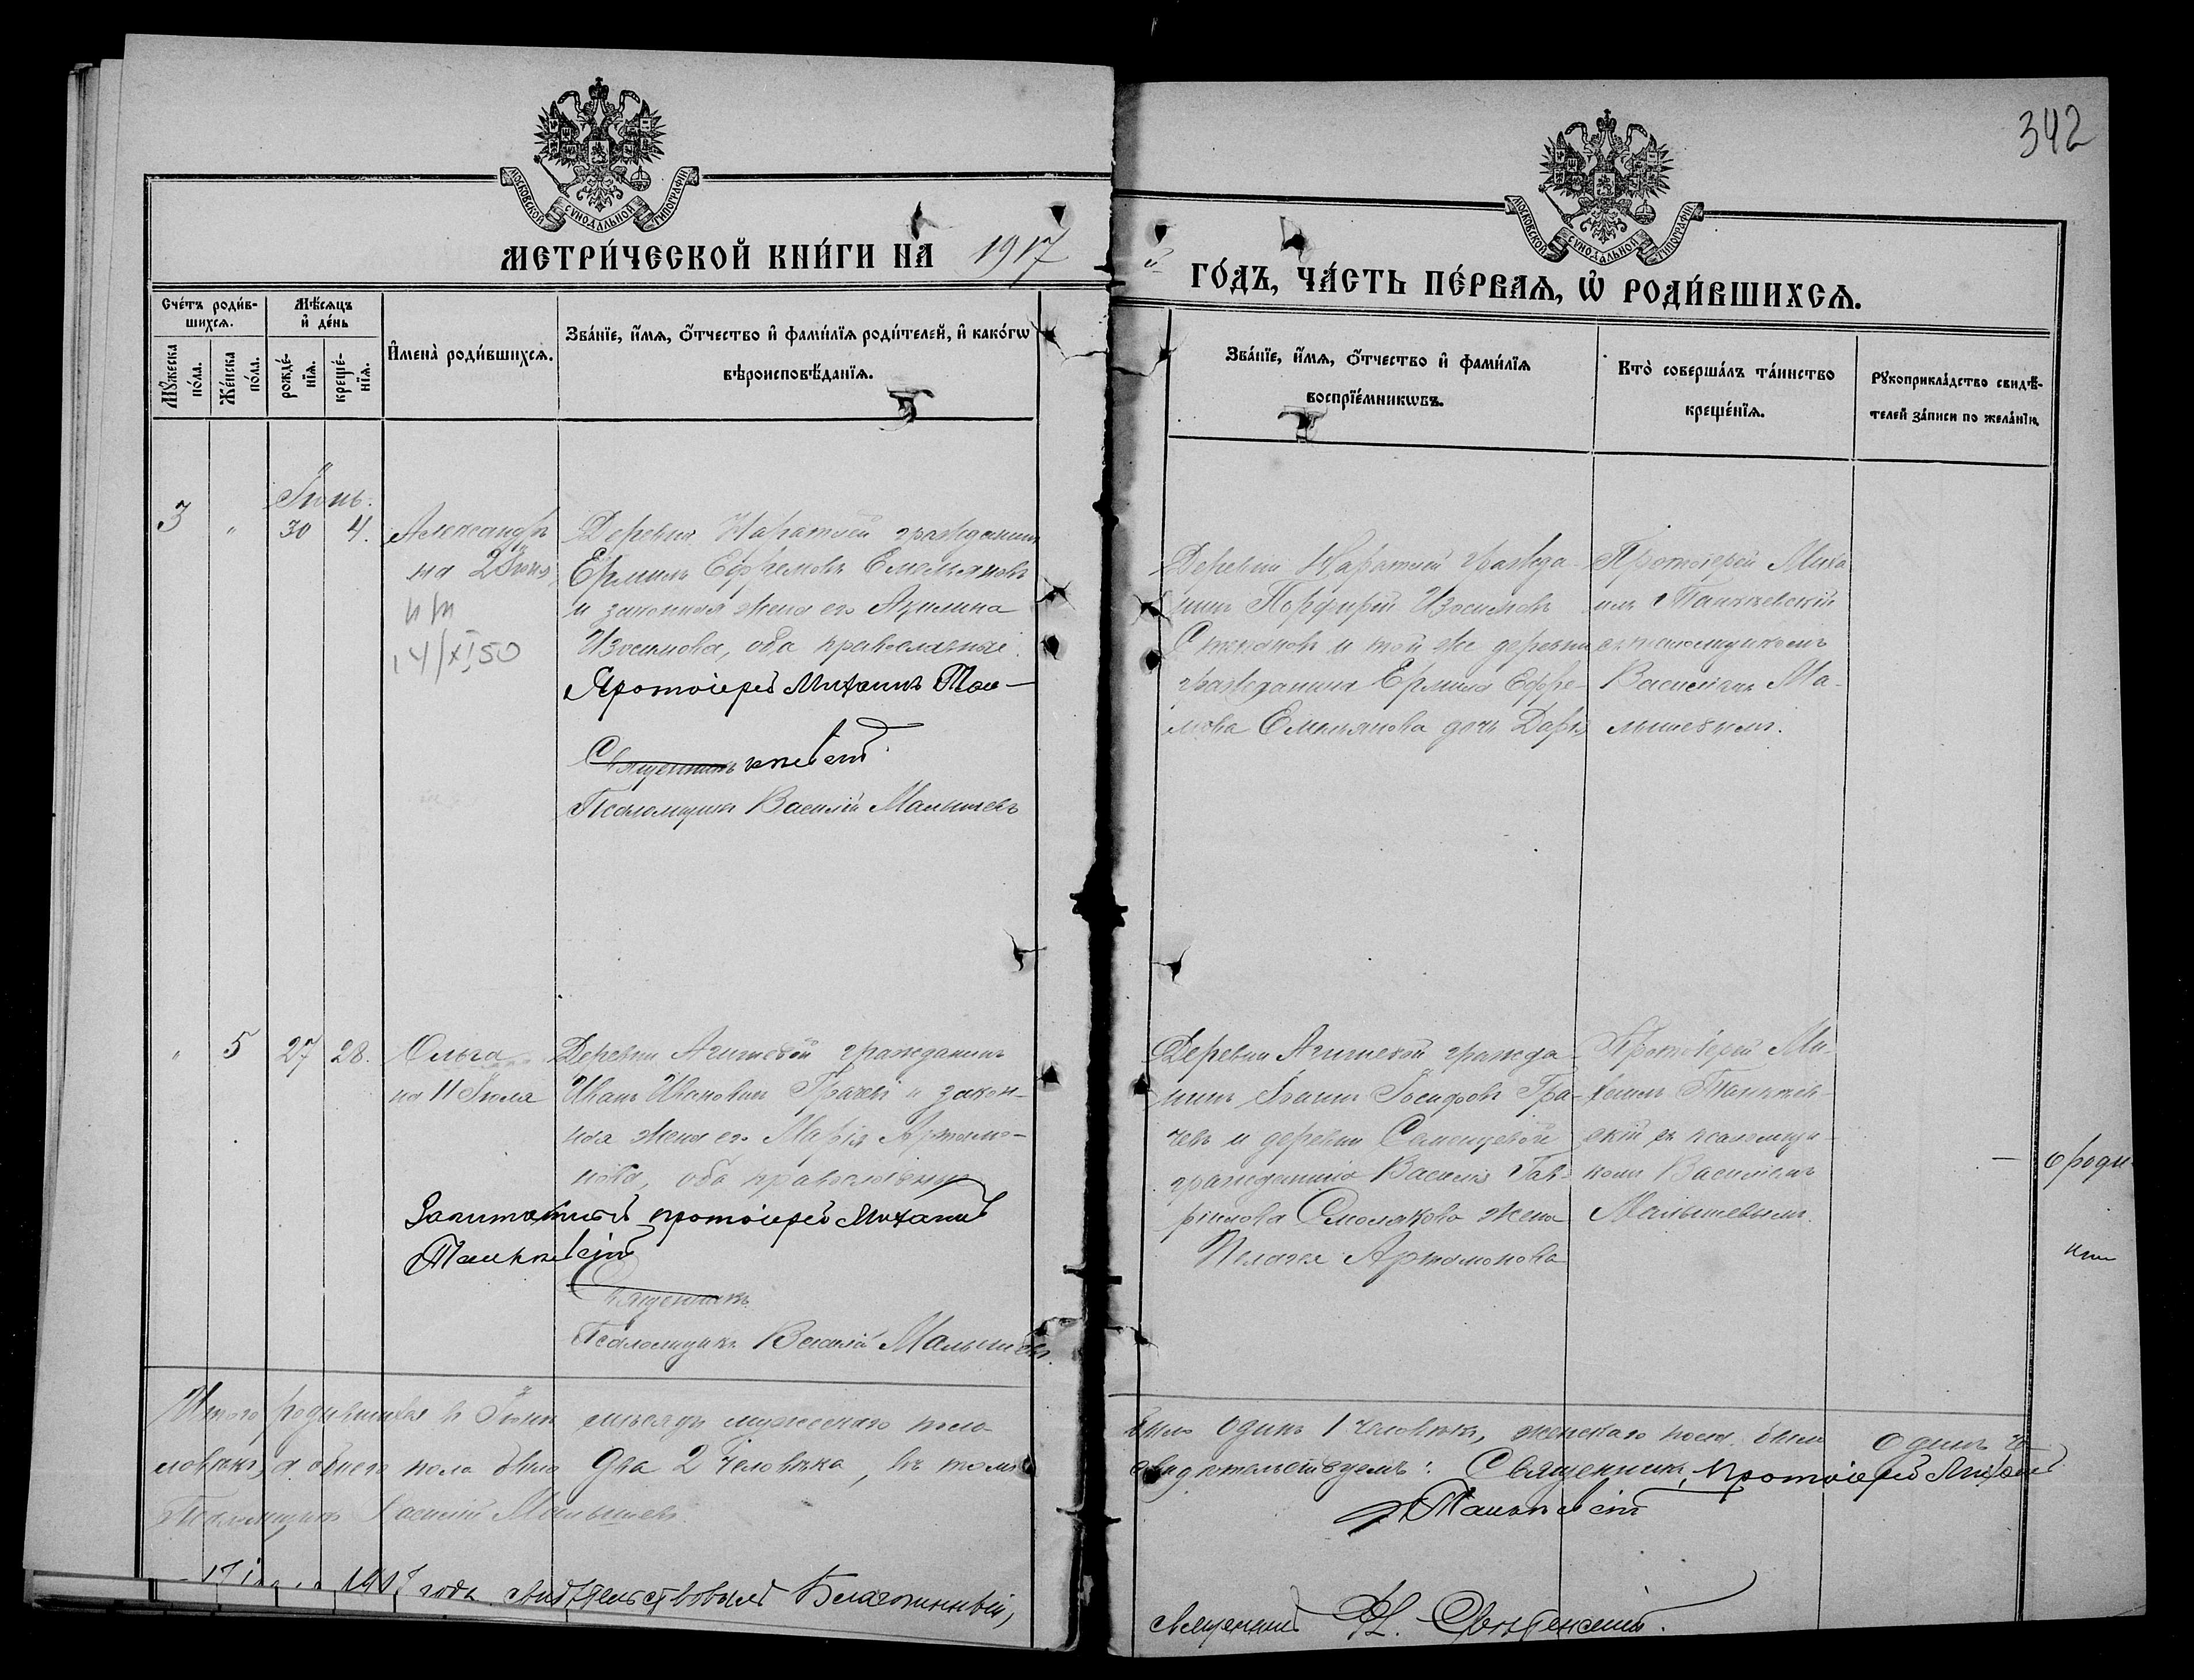 342
МОСКОВСКОЙ СУНОДАЛЬНОЙ ТИПОГРАФІИ
МОСКОВСКОЙ СУНОДАЛЬНОЙ ТИПОГРАФІИ
МЕТРИ́ЧЕСКОЙ КНИ́ГИ НА 1917
й ГО́ДЪ, ЧА́СТЬ ПЕ́РВАѦ, Ѡ҆ РОДИ́ВШИХСѦ.
Сче́тъ роди́в-
шихсѧ.
Мꙋжеска
по́ла.
Же́нска
по́ла.
Мѣ́сѧцъ
и҆ де́нь
рожде́-
нїѧ.
креще́-
нїѧ.
И҆мена̀ роди́вшихсѧ.
Зва́нїе, и҆́мѧ, ѻ҆́тчество и҆ фами́лїѧ роди́телей, и҆ како́гѡ
вѣроисповѣ́данїѧ.
Зва́нїе, и҆́мѧ, ѻ҆́тчество и҆ фами́лїѧ
воспрїе́мникѡвъ.
Кто̀ соверша́лъ та́инство
креще́нїѧ.
Рꙋкоприкла́дство свидѣ́-
телей за́писи по жела́нїю.
Іюнь.
3 " 30 4. Александръ
на 2 Іюня
14/XI 50
Деревни гражданинъ
Ермилъ Ефремовъ Емельяновъ
и законная жена его Акилина
Изосимова, оба православные.
Протоіерей Михаилъ Тан-
Священникъ кевскій
Псаломщикъ Василій Малышевъ
Деревни гражда-
нинъ Порфирій Изосимовъ
Степановъ и той же деревни
гражданина Ермила Ефре-
мова Емельянова дочь Дарья
Протоіерей Миха
илъ Танькевскій
съ псаломщикомъ
Василіемъ Ма-
лышевымъ.
" 5 27 28. Ольга
на 11 Іюля
Деревни Агишевой гражданинъ
Иванъ Ивановъ Грачевъ и закон-
ная жена его Марія Артамо-
нова, оба православные
Заштатный протоіерей Михаилъ
Танькевскій
Священникъ
Псаломщикъ Василій Малышевъ.
Деревни Агишевой гражда-
нинъ Іосифовъ Гра-
чевъ и деревни Семенцевой
гражданина Василія Гав-
рилова Смолякова жена
Пелагея Артамонова
Протоіерей Ми-
хаилъ Танькев-
скій съ псаломщи-
комъ Василіемъ
Малышевымъ.
о роди-
Итого родившихся въ Іюнѣ мѣсяцѣ мужескаго пола
было одинъ 1 человѣкъ, женскаго пола было одинъ че-
ловѣкъ, а обоего пола было два 2 человѣка, въ томъ
свидѣтельствуемъ: Священникъ, протоіерей Михаилъ
Танькевскій
Псаломщикъ Василій Малышевъ.
1917 года свидѣтельствовалъ Благочинный,
священникъ